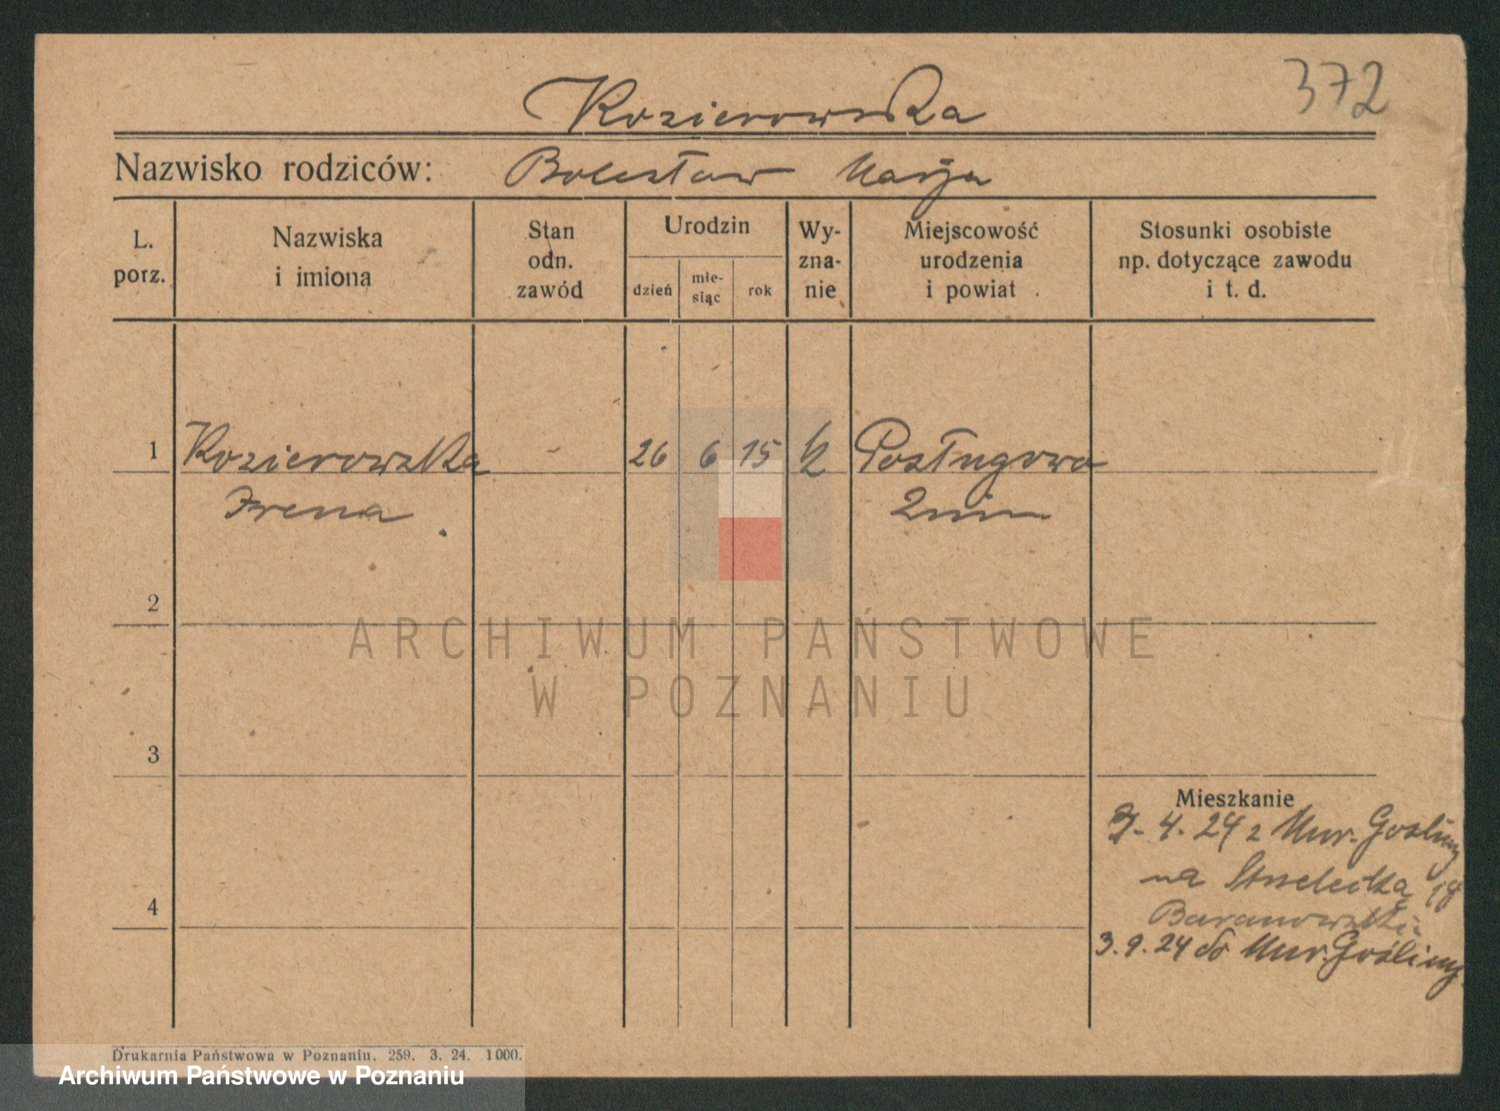 372
Kozierowska
Nazwisko rodziców: Bolesław Marja
L. porz.
Nazwiska i imiona
Stan odn. zawód
Urodzin
dzień
mie-siąc
rok
Wy-zna-nie
Miejscowość urodzenia i powiat
Stosunki osobiste np. dotyczące zawodu i t. d.
1 Kozierowska 26 6 15 k Posługowo
Irena Żnin
2
ARCHIWUM PAŃSTWOWE
W POZNANIU
3
Mieszkanie
4. 24 z Mur. Gośliny
na Strzelecką
4
Baranowski
3. 9. 24 do Mur. Gośliny
Drukarnia Państwowa w Poznaniu. 259. 3. 24. 1000.
Archiwum Państwowe w Poznaniu